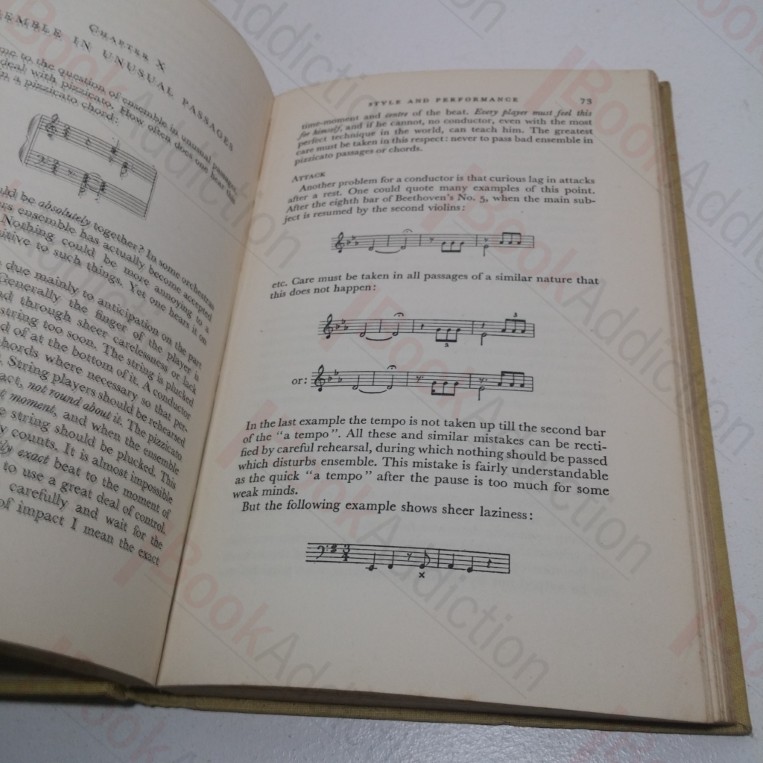 CHAPTER X
EMBLE IN UNUSUAL PASSAGES
me to the question of ensemble in unusual passages,
deal with pizzicato. How often does one hear this
n a pizzicato chord:
uld be absolutely together? In some orchestras
rs ensemble has actually become accepted
Nothing could be more annoying to a
sitive to such things. Yet one hears it on
due mainly to anticipation on the part
Generally the finger of the player is
nd through sheer carelessness or lack
string too soon. The string is plucked
d of at the bottom of it. A conductor
chords where necessary so that per-
. String players should be rehearsed
act, not round about it. The pizzicato
g moment, and when the ensemble
e string should be plucked. This
y counts. It is almost impossible
ly exact beat to the moment of
to use a great deal of control.
carefully and wait for the
of impact I mean the exact
STYLE AND PERFORMANCE 73
time-moment and centre of the beat. Every player must feel this
for himself, and if he cannot, no conductor, even with the most
perfect technique in the world, can teach him. The greatest
care must be taken in this respect: never to pass bad ensemble in
pizzicato passages or chords.
ATTACK
Another problem for a conductor is that curious lag in attacks
after a rest. One could quote many examples of this point.
After the eighth bar of Beethoven's No. 5, when the main sub-
ject is resumed by the second violins:
etc. Care must be taken in all passages of a similar nature that
this does not happen:
3
3
or:
In the last example the tempo is not taken up till the second bar
of the "a tempo". All these and similar mistakes can be recti-
fied by careful rehearsal, during which nothing should be passed
which disturbs ensemble. This mistake is fairly understandable
as the quick "a tempo" after the pause is too much for some
weak minds.
But the following example shows sheer laziness:
3
4
x
BookAddiction